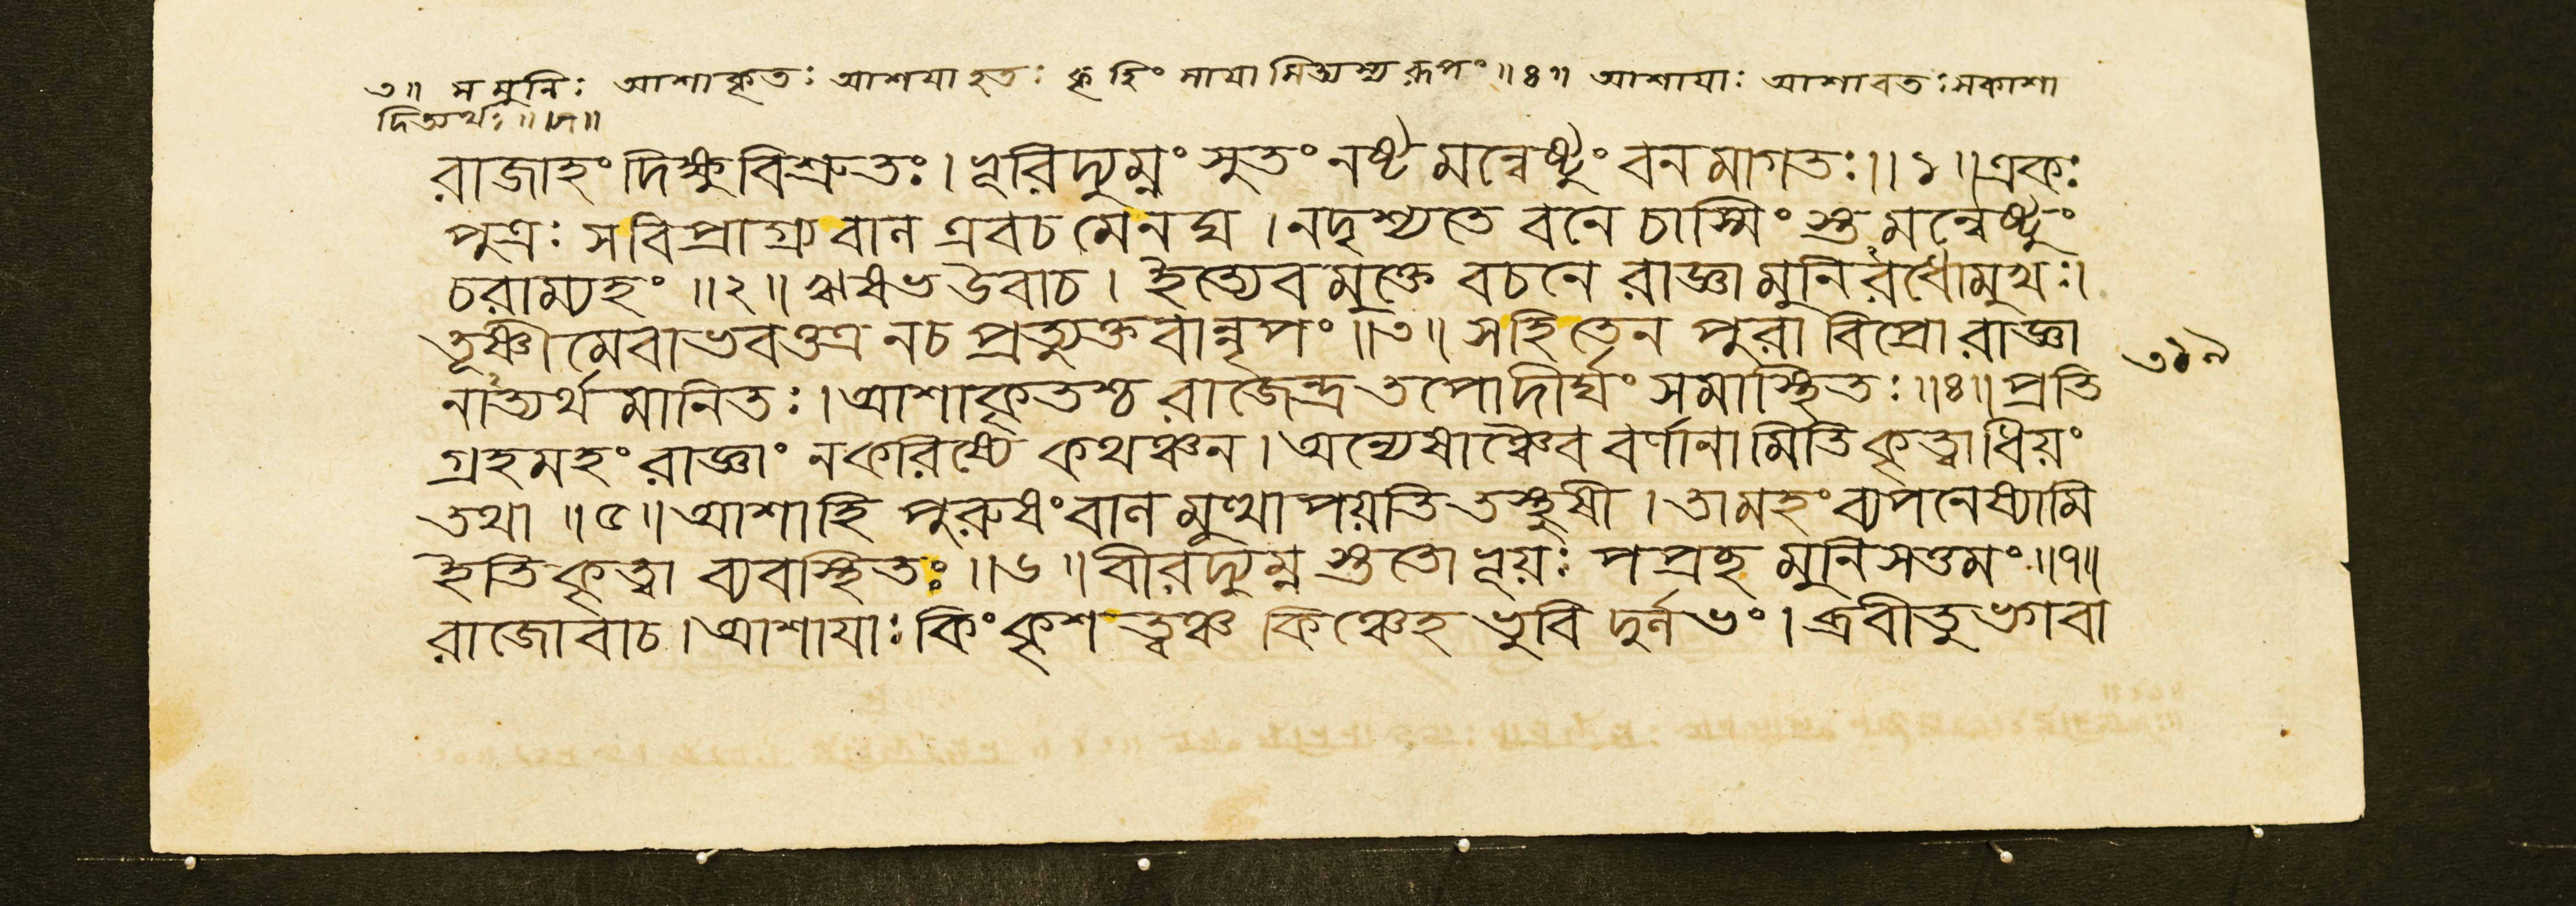 ৩॥ স মুনিঃ আশাকৃতঃ আশয়া হতঃ
দিত্যর্থঃ॥
রাজাহং দিক্ষু বিশ্রুতঃ। ভূরিদ্যুম্নং সুতং নষ্টমন্বেষ্টুং বনমাগতঃ॥১॥একঃ
পুত্রঃ সবিপ্রাগ্র্য বাল এবচ মেনঘ। নদৃশ্যতে বনে চাস্মিং স্তমন্বেষ্টুং
চরাম্যহং॥২॥ঋষভ উবাচ। ইত্যেবমুক্তে বচনে রাজ্ঞা মুনিরধোমুখঃ।
তূষ্ণীমেবাভবত্তত্র নচ প্রত্যুক্তবান্নৃপং॥৩॥সহি তেন পুরা বিপ্রো রাজ্ঞা
নাত্যর্থ মানিতঃ। আশাকৃতশ্চ রাজেন্দ্র তপোদীর্ঘং সমাস্থিতঃ॥৪॥প্রতি
গ্রহমহং রাজ্ঞাং নকরিষ্যে কথঞ্চন। অন্যেষাঞ্চৈব বর্ণানামিতি কৃত্বাধিয়ং
তথা॥৫॥আশাহি পুরুষং বালমুত্থাপয়তি তস্থুষী। তামহং ব্যপনেষ্যামি
ইতি কৃত্বা ব্যবস্থিতঃ॥৬॥বীরদ্যুম্নস্তুতো ভূয়ঃ পপ্রচ্ছ মুনিসত্তমং॥৭॥
রাজোবাচ। আশায়াঃ কিং কৃশত্বঞ্চ কিঞ্চেহ ভুবি দুর্লভং। ব্রবীতু ভগবা